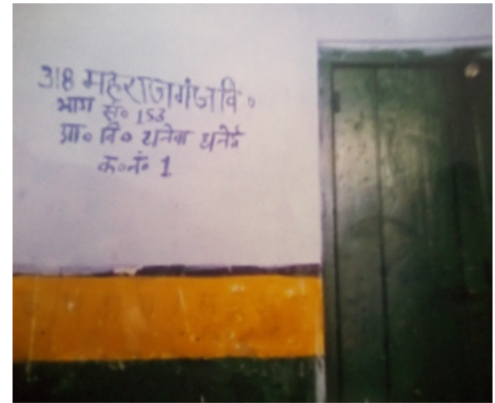 318 महराजगंज वि०
भाग सं० 153
प्रा० वि० धनेवा धनेई
क०नं० 1